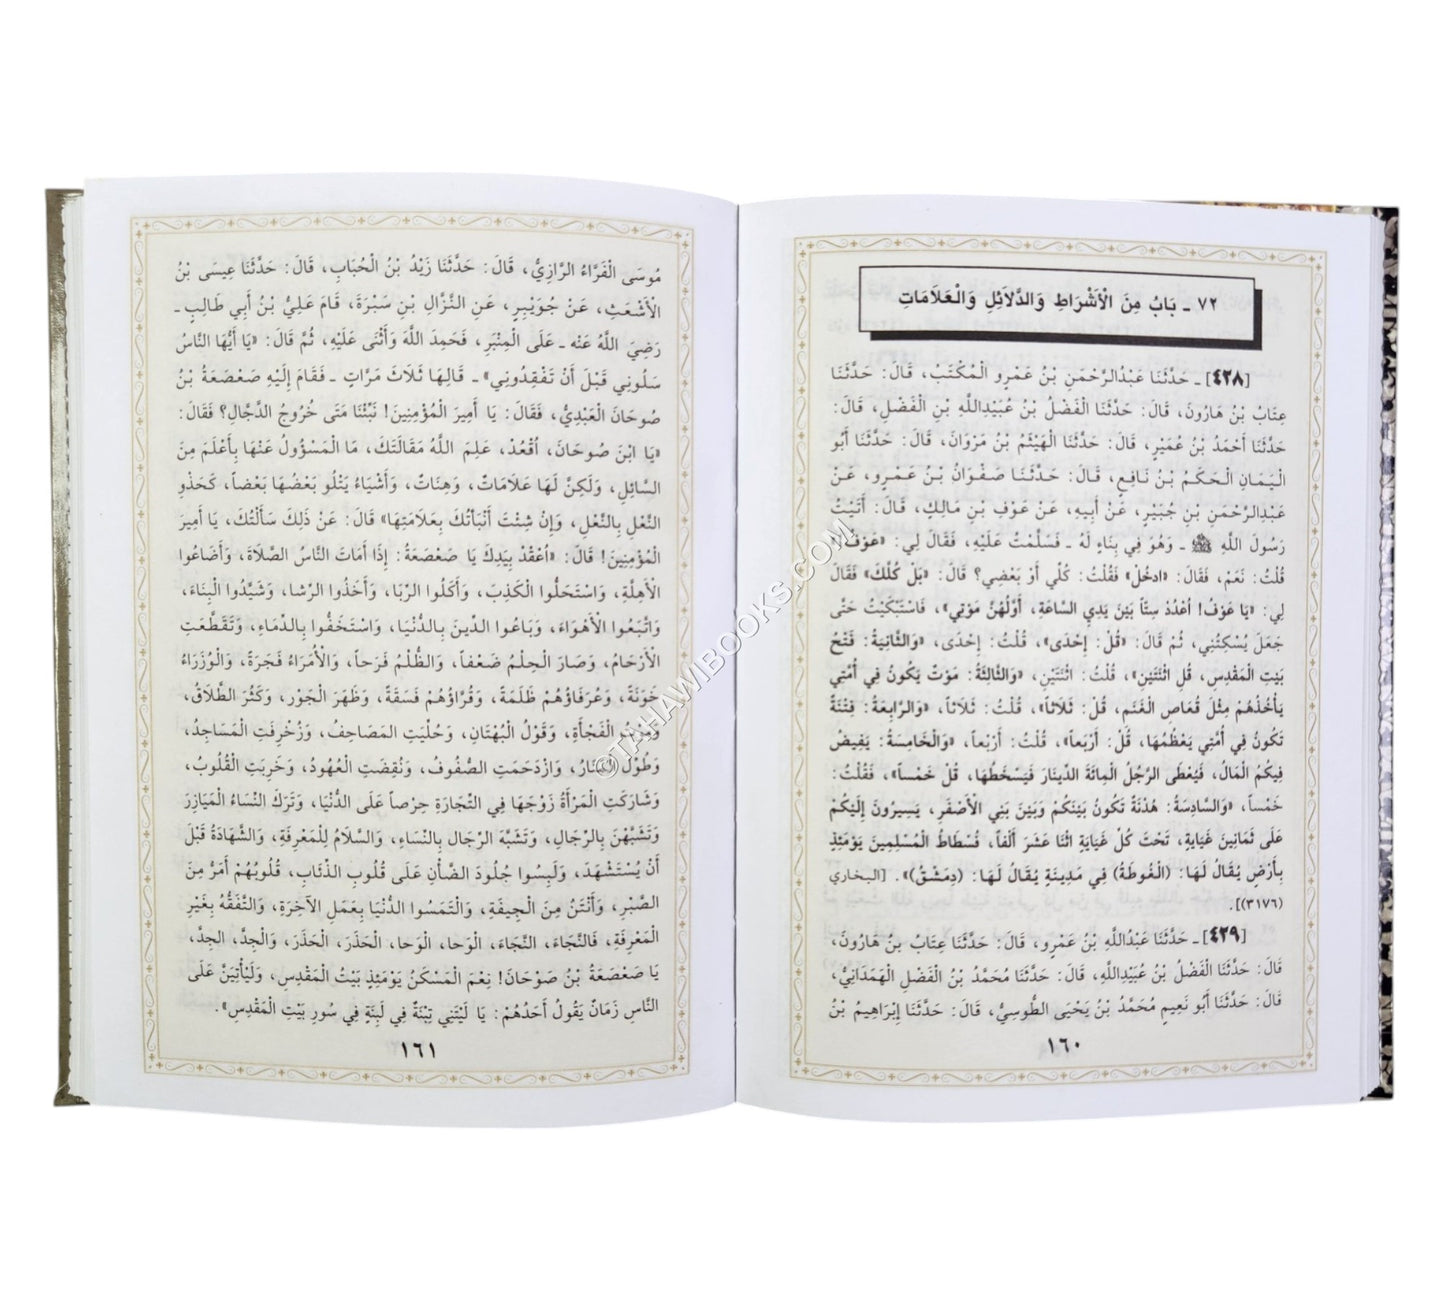 ٧٢ ـ بَابُ مِنَ الْأَشْرَاطِ وَالدَّلَائِلِ وَالْعَلَامَاتِ
[٤٢٨] ـ حَدَّثَنَا عَبْدُالرَّحْمَنِ بْنُ عَمْرٍو الْمُكْتَبُ، قَالَ: حَدَّثَنَا
عِتَابُ بْنُ هَارُونَ، قَالَ: حَدَّثَنَا الْفَضْلُ بْنُ عُبَيْدِاللَّهِ بْنِ الْفَضْلِ، قَالَ:
حَدَّثَنَا أَحْمَدُ بْنُ عُمَيْرٍ، قَالَ: حَدَّثَنَا الْهَيْثَمُ بْنُ مَرْوَانَ، قَالَ: حَدَّثَنَا أَبُو
الْيَمَانِ الْحَكَمُ بْنُ نَافِعٍ، قَالَ: حَدَّثَنَا صَفْوَانُ بْنُ عَمْرٍو، عَنْ
عَبْدِالرَّحْمَنِ بْنِ جُبَيْرٍ، عَنْ أَبِيهِ، عَنْ عَوْفِ بْنِ مَالِكٍ، قَالَ: أَتَيْتُ
رَسُولَ اللَّهِ ﷺ ـ وَهُوَ فِي بِنَاءٍ لَهُ ـ فَسَلَّمْتُ عَلَيْهِ، فَقَالَ لِي: «عَوْفُ!»
قُلْتُ: نَعَمْ، فَقَالَ: «ادخُلْ» فَقُلْتُ: كُلِّي أَوْ بَعْضِي؟ قَالَ: «بَلْ كُلُّكَ» فَقَالَ
لِي: «يَا عَوْفُ! اعْدُدْ سِتّاً بَيْنَ يَدِي السَّاعَةِ، أَوَّلُهُنَّ مَوْتِي»، فَاسْتَبْكَيْتُ حَتَّى
جَعَلَ يُسْكِتُنِي، ثُمْ قَالَ: «قُلْ: إِحْدَى»، قُلْتُ: إِحْدَى، «وَالثَّانِيَةُ: فَتْحُ
بَيْتِ الْمَقْدِسِ، قُلِ اثْنَتَيْنِ»، قُلْتُ: اثْنَتَيْنِ، «وَالثَّالِثَةُ: مَوْتٌ يَكُونُ فِي أُمَّتِي
يَأْخُذُهُمْ مِثْلَ قُعَاصِ الْغَنَمِ، قُلْ: ثَلَاثاً»، قُلْتُ: ثَلَاثاً، «وَالرَّابِعَةُ: فِتْنَةٌ
تَكُونُ فِي أُمَّتِي يَعْظُمُهَا، قُلْ: أَرْبَعاً»، قُلْتُ: أَرْبَعاً، «وَالْخَامِسَةُ: يَفِيضُ
فِيكُمُ الْمَالُ، فَيُعْطَى الرَّجُلُ الْمِائَةَ الدِّينَارَ فَيَسْخَطُهَا، قُلْ خَمْساً»، فَقُلْتُ:
خَمْساً، «وَالسَّادِسَةُ: هُدْنَةٌ تَكُونُ بَيْنَكُمْ وَبَيْنَ بَنِي الْأَصْفَرِ، يَسِيرُونَ إِلَيْكُمْ
عَلَى ثَمَانِينَ غَيَايَةٍ، تَحْتَ كُلِّ غَيَايَةٍ اثْنَا عَشَرَ أَلْفاً، فُسْطَاطُ الْمُسْلِمِينَ يَوْمَئِذٍ
بِأَرْضٍ يُقَالُ لَهَا: (الْغُوطَةُ) فِي مَدِينَةٍ يُقَالُ لَهَا: (دِمَشْقُ)». [البخاري
(٣١٧٦)].
[٤٢٩] ـ حَدَّثَنَا عَبْدُاللَّهِ بْنُ عَمْرٍو، قَالَ: حَدَّثَنَا عِتَابُ بْنُ هَارُونَ،
قَالَ: حَدَّثَنَا الْفَضْلُ بْنُ عُبَيْدِاللَّهِ، قَالَ: حَدَّثَنَا مُحَمَّدُ بْنُ الْفَضْلِ الْهَمْدَانِيُّ،
قَالَ: حَدَّثَنَا أَبُو نَعِيمٍ مُحَمَّدُ بْنُ يَحْيَى الطُّوسِيُّ، قَالَ: حَدَّثَنَا إِبْرَاهِيمُ بْنُ
١٦٠
مُوسَى الْفَرَّاءُ الرَّازِيُّ، قَالَ: حَدَّثَنَا زَيْدُ بْنُ الْحُبَابِ، قَالَ: حَدَّثَنَا عِيسَى بْنُ
الْأَشْعَثِ، عَنْ جُوَيْبِرٍ، عَنِ النَّزَّالِ بْنِ سَبْرَةَ، قَامَ عَلِيُّ بْنُ أَبِي طَالِبٍ ـ
رَضِيَ اللَّهُ عَنْهُ ـ عَلَى الْمِنْبَرِ، فَحَمِدَ اللَّهَ وَأَثْنَى عَلَيْهِ، ثُمَّ قَالَ: «يَا أَيُّهَا النَّاسُ
سَلُونِي قَبْلَ أَنْ تَفْقِدُونِي» ـ قَالِهَا ثَلَاثَ مَرَّاتٍ ـ فَقَامَ إِلَيْهِ صَعْصَعَةُ بْنُ
صُوحَانَ الْعَبْدِيُّ، فَقَالَ: يَا أَمِيرَ الْمُؤْمِنِينَ! نَبِّئْنَا مَتَى خُرُوجُ الدَّجَّالِ؟ فَقَالَ:
«يَا ابْنَ صُوحَانَ، اُقْعُدْ، عَلِمَ اللَّهُ مَقَالَتَكَ، مَا الْمَسْؤُولُ عَنْهَا بِأَعْلَمَ مِنَ
السَّائِلِ، وَلَكِنْ لَهَا عَلَامَاتٌ، وَهِنَاتٌ، وَأَشْيَاءُ يَتْلُو بَعْضُهَا بَعْضاً، كَحَذْوِ
النَّعْلِ بِالنَّعْلِ، وَإِنْ شِئْتَ أَنْبَأْتُكَ بِعَلَامَتِهَا» قَالَ: عَنْ ذَلِكَ سَأَلْتُكَ، يَا أَمِيرَ
الْمُؤْمِنِينَ! قَالَ: «اُعْقُدْ بِيَدِكَ يَا صَعْصَعَةُ: إِذَا أَمَاتَ النَّاسُ الصَّلَاةَ، وَأَضَاعُوا
الْأَهِلَّةِ، وَاسْتَحَلُّوا الْكَذِبَ، وَأَكَلُوا الرِّبَا، وَأَخَذُوا الرِّشَا، وَشَيَّدُوا الْبِنَاءَ،
وَاتْبَعُوا الْأَهْوَاءَ، وَبَاعُوا الدِّينَ بِالدُّنْيَا، وَاسْتَخَفُّوا بِالدِّمَاءِ، وَتَقَطَّعَتِ
الْأَرْحَامُ، وَصَارَ الْحِلْمُ ضَعْفاً، وَالظُّلْمُ فَرَحاً، وَالْأُمَرَاءُ فَجَرَةً، وَالْوُزَرَاءُ
خَوَنَةً، وَعُرَفَاؤُهُمْ ظَلَمَةً، وَقُرَّاؤُهُمْ فَسَقَةً، وَظَهَرَ الْجَوْرُ، وَكَثُرَ الطَّلَاقُ،
الْفَجْأَةِ، وَقَوْلُ الْبُهْتَانِ، وَحُلِّيَتِ الْمَصَاحِفُ، وَزُخْرِفَتِ الْمَسَاجِدُ،
وَطُوِّلَ الْمَنَارُ، وَازْدَحَمَتِ الصُّفُوفُ، وَنُقِضَتِ الْعُهُودُ، وَخَرِبَتِ الْقُلُوبُ،
وَشَارَكَتِ الْمَرْأَةُ زَوْجَهَا فِي التِّجَارَةِ حِرْصاً عَلَى الدُّنْيَا، وَتَرَكَ النِّسَاءُ الْمَيَازِرَ
وَتَشَبَّهْنَ بِالرِّجَالِ، وَتَشَبَّهَ الرِّجَال بِالنِّسَاءِ، وَالسَّلَامُ لِلْمَعْرِفَةِ، وَالشَّهَادَةُ قَبْلَ
أَنْ يُسْتَشْهَدَ، وَلَبِسُوا جُلُودَ الضَّأْنِ عَلَى قُلُوبِ الذِّئَابِ، قُلُوبُهُمْ أَمَرُّ مِنَ
الصَّبْرِ، وَأَنْتَنُ مِنَ الْجِيفَةِ، وَالْتَمَسُوا الدُّنْيَا بِعَمَلِ الْآخِرَةِ، وَالتَّفَقُّهُ بِغَيْرِ
الْمَعْرِفَةِ، فَالنَّجَاءَ، النَّجَاءَ، الْوَحَا، الْوَحَا، الْحَذَرَ، الْحَذَرَ، وَالْجِدَّ، الْجِدَّ،
يَا صَعْصَعَةُ بْنُ صَوْحَانَ! نِعْمَ الْمَسْكَنُ يَوْمَئِذٍ بَيْتُ الْمَقْدِسِ، وَلَيَأْتِيَنَّ عَلَى
النَّاسِ زَمَانٌ يَقُولُ أَحَدُهُمْ: يَا لَيْتَنِي تِبْنَةٌ فِي لَبِنَةٍ فِي سُورِ بَيْتِ الْمَقْدِسِ».
١٦١
©TAHAWIBOOKS.COM